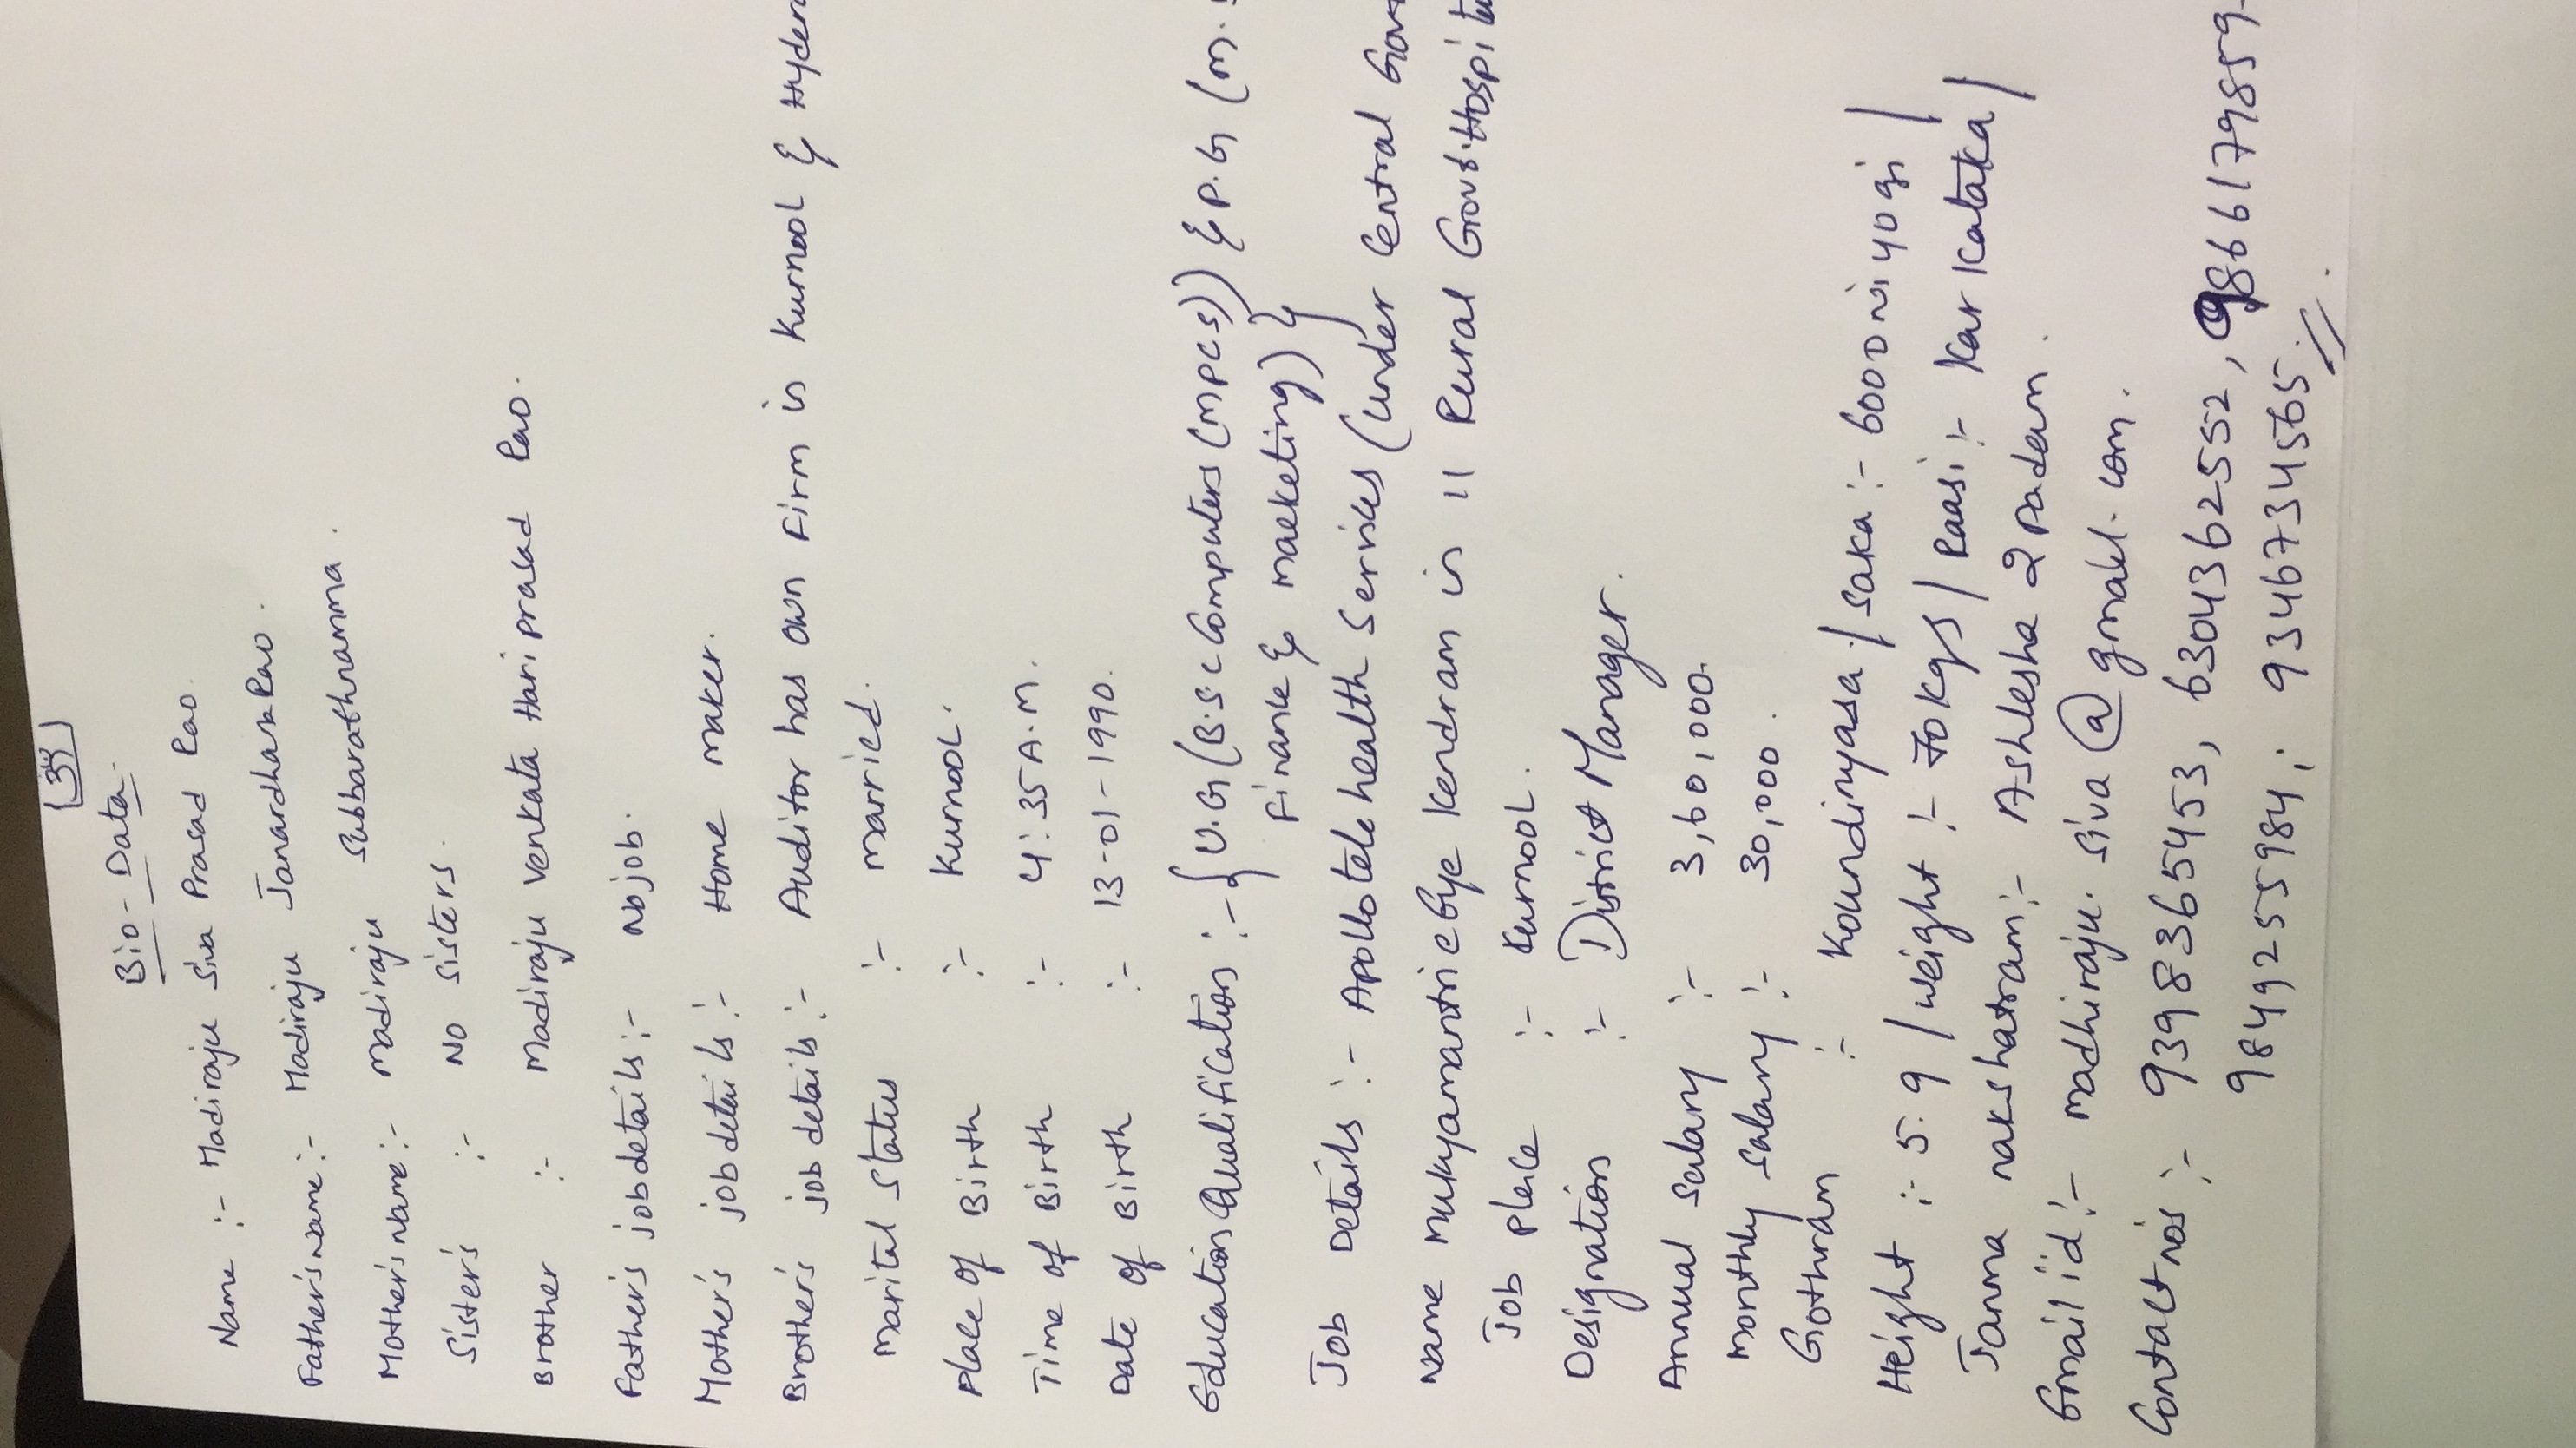 ॐ
Bio-Data
Name :- Madiraju Siva Prasad Rao.
Father's Name :- Madiraju Janardhana Rao.
Mother's Name :- Madiraju Subbarathnamma.
Sister's :- No sisters.
Brother :- Madiraju Venkata Hari prasad Rao.
Father's job details :- No job.
Mother's job details :- Home maker.
Brother's job details :- Auditor has own firm in Kurnool & Hydera
Marital Status :- married.
Place of Birth :- Kurnool.
Time of Birth :- 4:35 A.M.
Date of Birth :- 13-01-1990.
Education Qualification :- {U.G (B.S.c Computers (MPCS)) & P.G (M.
Finance & Maeketing)}
Job Details :- Apollo tele health Services (under Central Govt
Name Mukyamantri e Eye Kendram in 11 Rural Govt. Hospita
Job place :- Kurnool.
Designation :- District Manager.
Annual salary :- 3,60,000.
Monthly salary :- 30,000.
Gothram :- Koundinyasa. / Saka :- 6000 niyogi /
Height :- 5.9 / weight :- 70 kgs / Raasi :- Karkataka /
Janma nakshatram :- Ashlesha 2 padam.
Gmail id :- madhiraju.siva@gmail.com.
Contact no's :- 9398365453, 6304362552, 9866179859
9849255984, 9346734565.//.